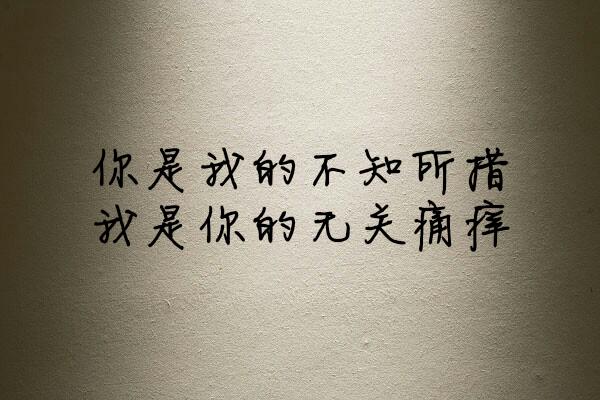 你是我的不知所措
我是你的无关痛痒